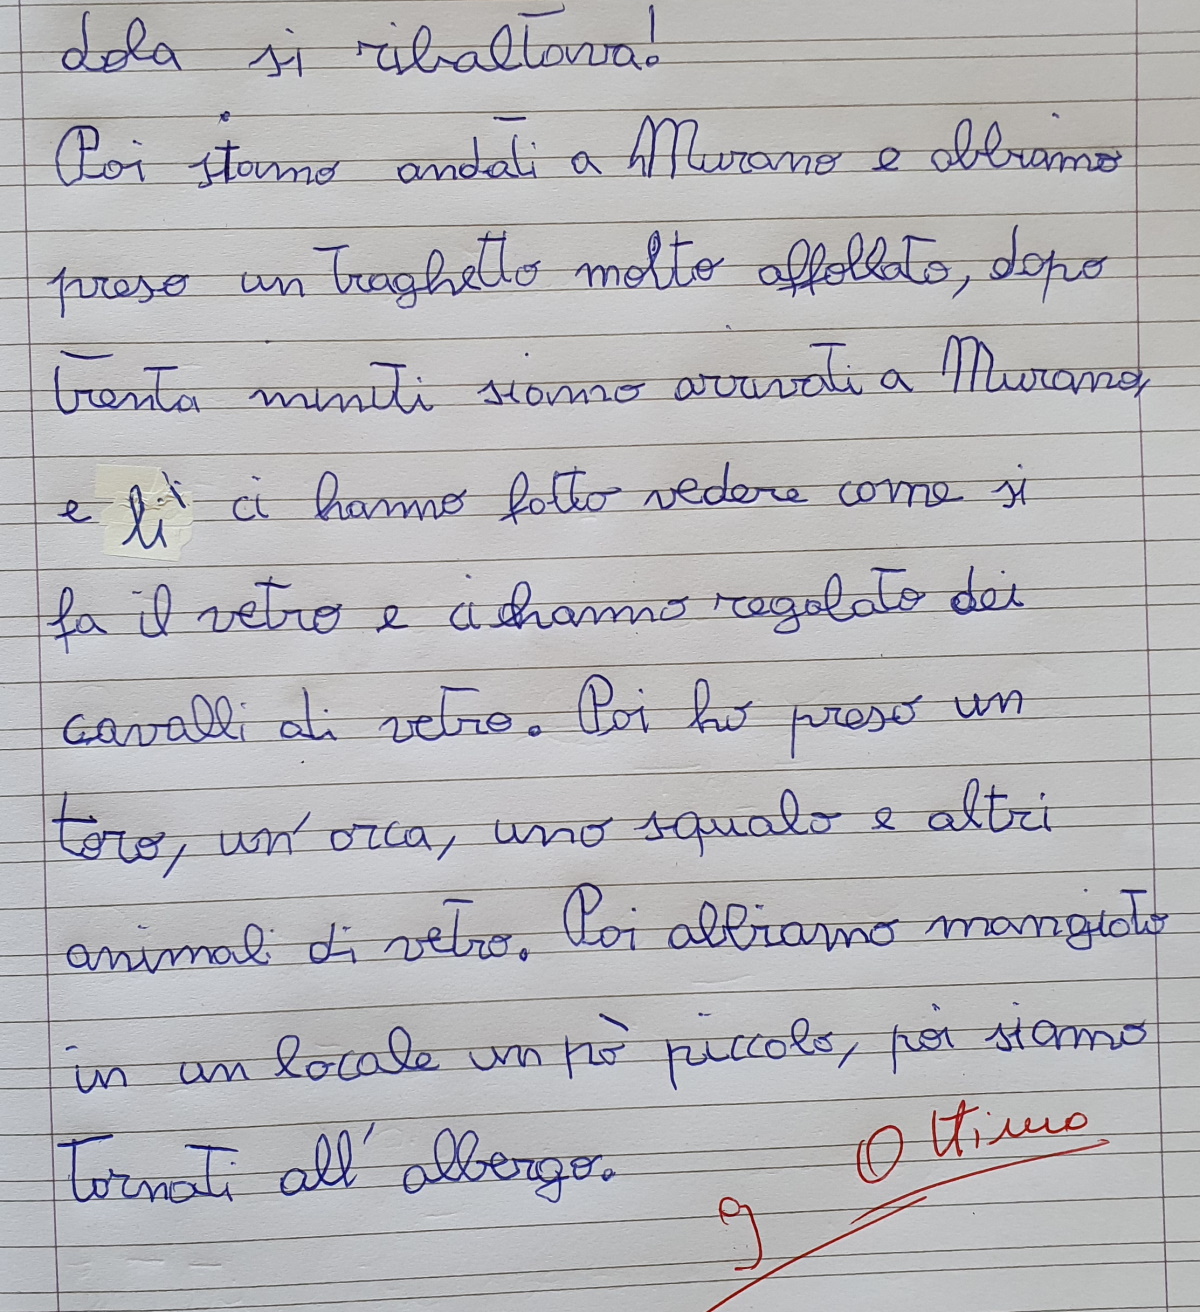 dola si ribaltava!
Poi siamo andati a Murano e abbiamo
preso un traghetto molto affollato, dopo
trenta minuti siamo arrivati a Murano,
e lì ci hanno fatto vedere come si
fa il vetro e ci hanno regalato dei
cavalli di vetro. Poi ho preso un
toro, un'orca, uno squalo e altri
animali di vetro. Poi abbiamo mangiato
in un locale un pò piccolo, poi siamo
tornati all'albergo.
Ottimo
9